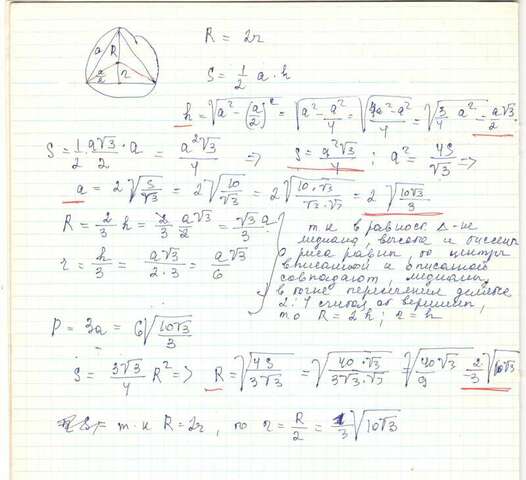 a R
a/2 r
R = 2r
S = 1/2 a · h
h = √(a² - (a/2)²) = √(a² - a²/4) = √((4a² - a²)/4) = √(3/4 a²) = a√3/2
S = 1/2 · a√3/2 · a = a²√3/4 => S = a²√3/4 ; a² = 4S/√3 =>
a = 2√(S/√3) = 2√(10/√3) = 2√(10·√3/(√3·√3)) = 2√(10√3/3)
R = 2/3 h = 2/3 a√3/2 = √3/3 a
r = h/3 = a√3/(2·3) = a√3/6
т.к в равност. Δ-ке
медиана, высота и биссект
риса равны, то центры
вписанной и описанной
совпадают, медианы
в точке пересечения делятся
2:1 считая от вершины,
то R = 2r; r = h
P = 3a = 6√(10√3/3)
S = 3√3/4 R² => R = √(4S/(3√3)) = √(40·√3/(3√3·√3)) = √(40√3/9) = 2/3 √(10√3)
т.к R = 2r, то r = R/2 = 1/3 √(10√3)